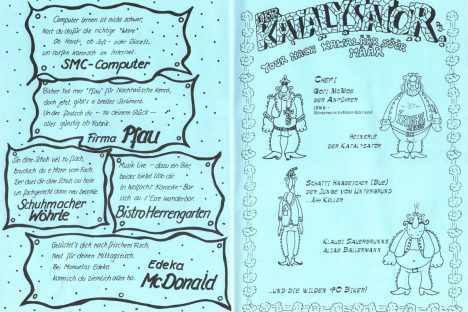 Computer lernen ist nicht schwer,
hast du dafür die richtige "Ware".
Ob Hard-, ob Soft- oder Diskett,
um surfen kannsch im Internet.
SMC-Computer
Bisher hat mer "Pfau" für Nachtwäsche kennt,
doch jetzt gibt's e breites Sortiment.
Und des findsch du - zu deinem Glück -
alles günstig ab Fabrik.
Firma Pfau
Sin dini Schuh viel zu flach,
brauchsch du e Mann vom Fach.
Der duet dir dini Schuh au hole
un fachgerecht dann neu besohle.
Schuhmacher
Wöhrle
Musik Live - dazu ein Bier,
beides bietet Udo dir.
In Wolfachs' Karaoke-Bar
isch au s'Esse wunderbar.
Bistro Herrengarten
Gelüstet's dich nach frischem Fisch,
heut für deinen Mittagstisch.
Bei Manuelas Edeka
kannsch du ziemlich aller ha.
Edeka
McDonald
DER
KATALYSATOR
TOUR NACH
MAAR
CHEF:
GOTZ MCMOS
DER ANFÜHRER
HEINERLE
DER KATALYSATOR
SCHATTI HABSEICHER (BUE)
DER JUNGE VOM UNTERGRUND
...ÄH KELLER
KLAUSI SAUERBRUNNS
ALIAS BALLERMANN
...UND DIE WILDEN 40 BIKER!